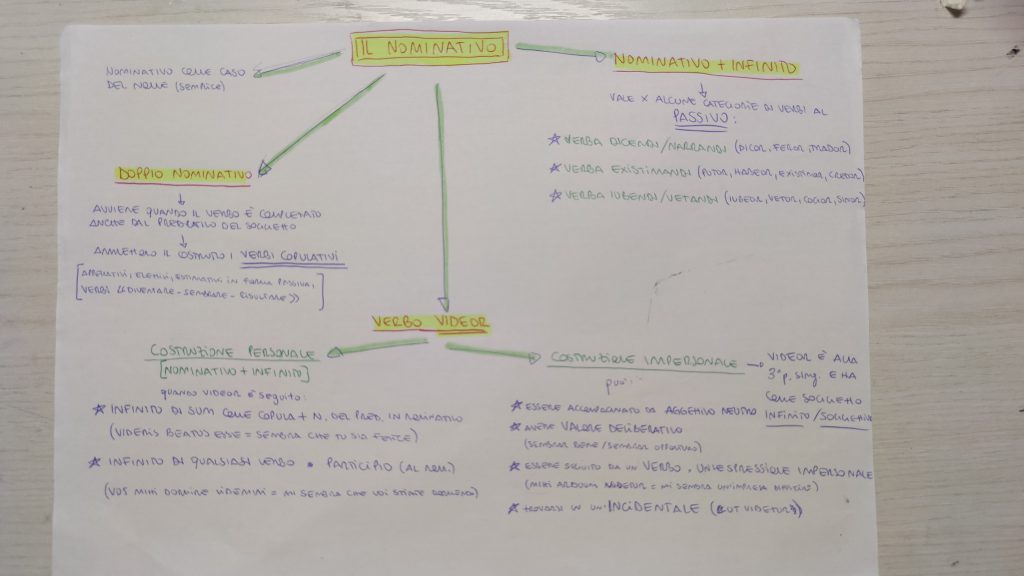 IL NOMINATIVO
NOMINATIVO COME CASO
DEL NOME (SEMPLICE)
NOMINATIVO + INFINITO
VALE X ALCUNE CATEGORIE DI VERBI AL
PASSIVO:
VERBA DICENDI/NARRANDI (DICOR, FEROR, TRADOR)
VERBA EXISTIMANDI (PUTOR, HABEOR, EXISTIMOR, CREDOR)
VERBA IUBENDI/VETANDI (IUBEOR, VETOR, COGOR, SINOR)
DOPPIO NOMINATIVO
AVVIENE QUANDO IL VERBO È COMPLETATO
ANCHE DAL PREDICATIVO DEL SOGGETTO
AMMETTONO IL COSTRUTTO I VERBI COPULATIVI
[APPELLATIVI, ELETTIVI, ESTIMATIVI IN FORMA PASSIVA,
VERBI «DIVENTARE - SEMBRARE - RISULTARE»]
VERBO VIDEOR
COSTRUZIONE PERSONALE
[NOMINATIVO + INFINITO]
QUANDO VIDEOR È SEGUITO:
INFINITO DI SUM COME COPULA + N. DEL PRED. IN NOMINATIVO
(VIDERIS BEATUS ESSE = SEMBRA CHE TU SIA FELICE)
INFINITO DI QUALSIASI VERBO PARTICIPIO (AL NOM.)
(VOS MIHI DORMIRE VIDEMINI = MI SEMBRA CHE VOI STIATE DORMENDO)
COSTRUZIONE IMPERSONALE
VIDEOR È ALLA
3ª p. sing. E HA
COME SOGGETTO
INFINITO/SOGGETTIVA
può:
ESSERE ACCOMPAGNATO DA AGGETTIVO NEUTRO
AVERE VALORE DELIBERATIVO
(SEMBRAR BENE/SEMBRAR OPPORTUNO)
ESSERE SEGUITO DA UN VERBO UN'ESPRESSIONE IMPERSONALE
(MIHI ARDUUM VIDETUR = MI SEMBRA UN'IMPRESA DIFFICILE)
TROVARSI IN UN'INCIDENTALE («UT VIDETUR»)